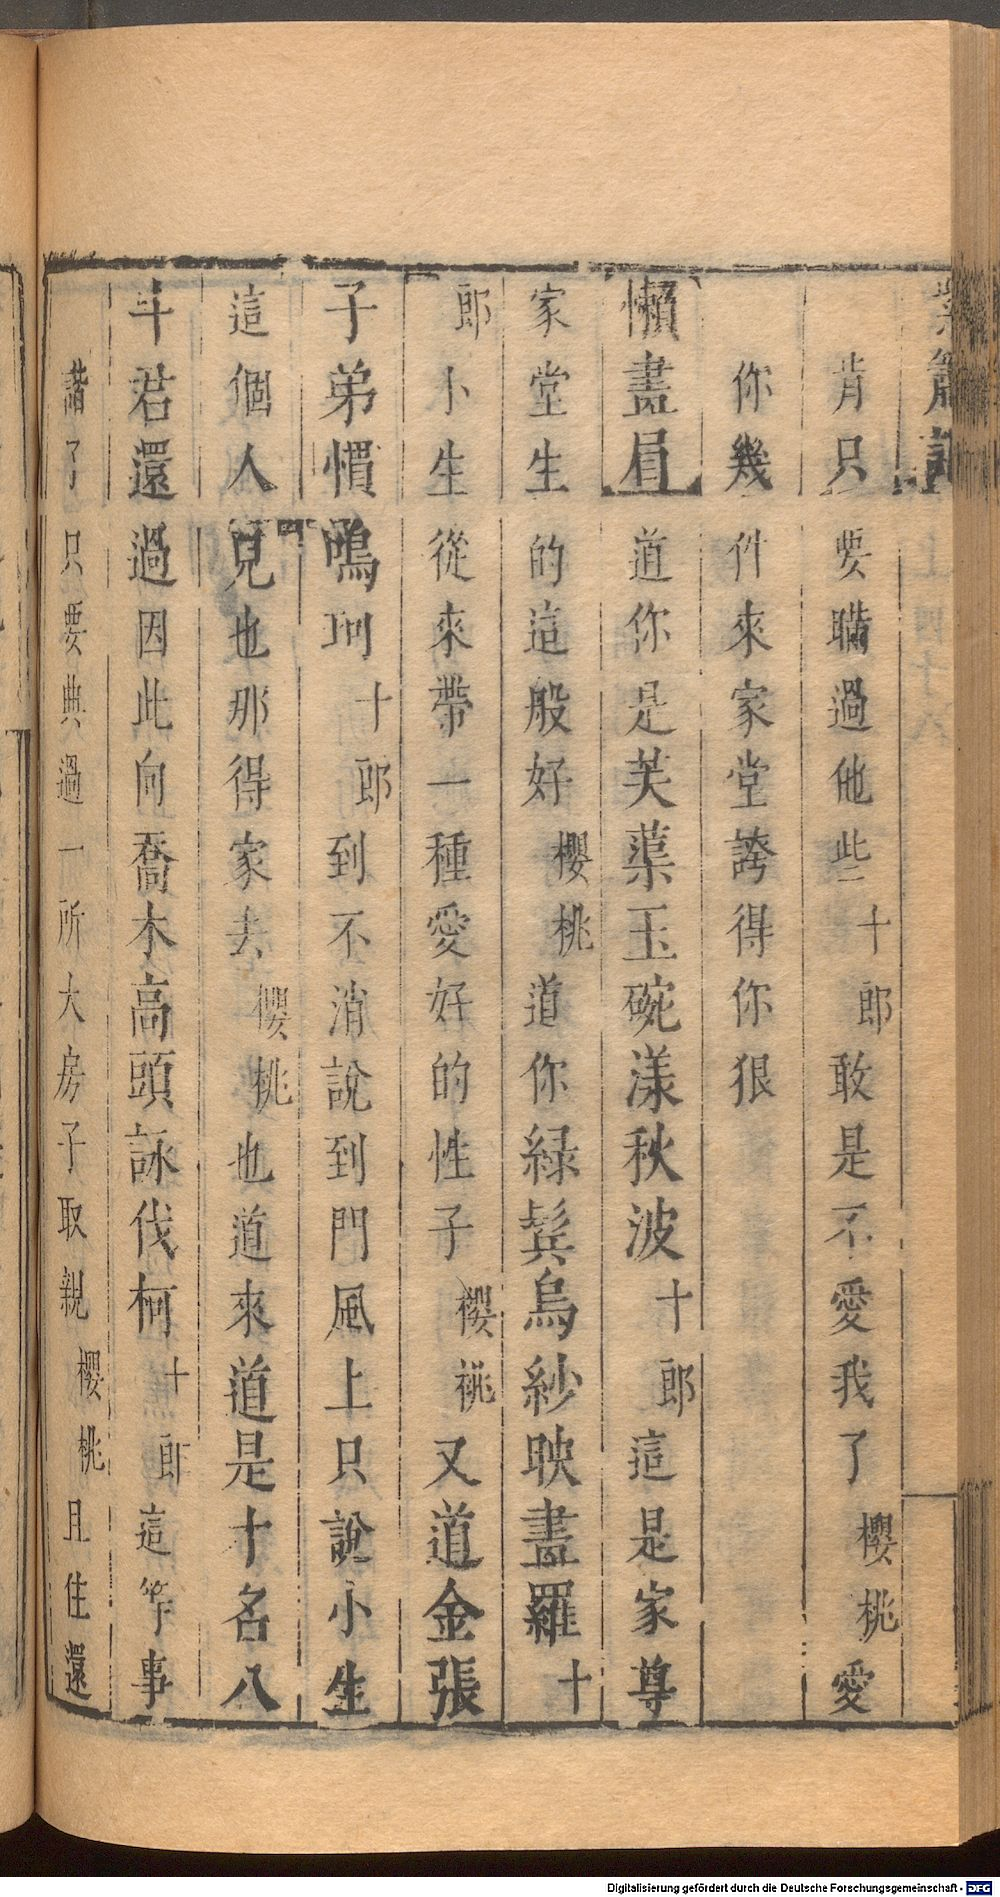 紫簫記
肯只要瞞過他些十郎敢是不愛我了櫻桃愛
你幾件來家堂誇得你狠
懶畫眉道你是芙蕖玉碗漾秋波十郎這是家尊
家堂生生的這般好櫻桃道你緑鬂烏紗映畫羅十
郎小生從來帶一種愛好的性子櫻桃又道金張
子弟慣鳴珂十郎到不消說到門風上只說小生
這個人兒也那得家去櫻桃也道來道是十名八
斗君還過因此向喬木高頭詠伐柯十郎這等事
諧了只要典過一所大房子取親櫻桃且住還
Digitalisierung gefördert durch die Deutsche Forschungsgemeinschaft - DFG